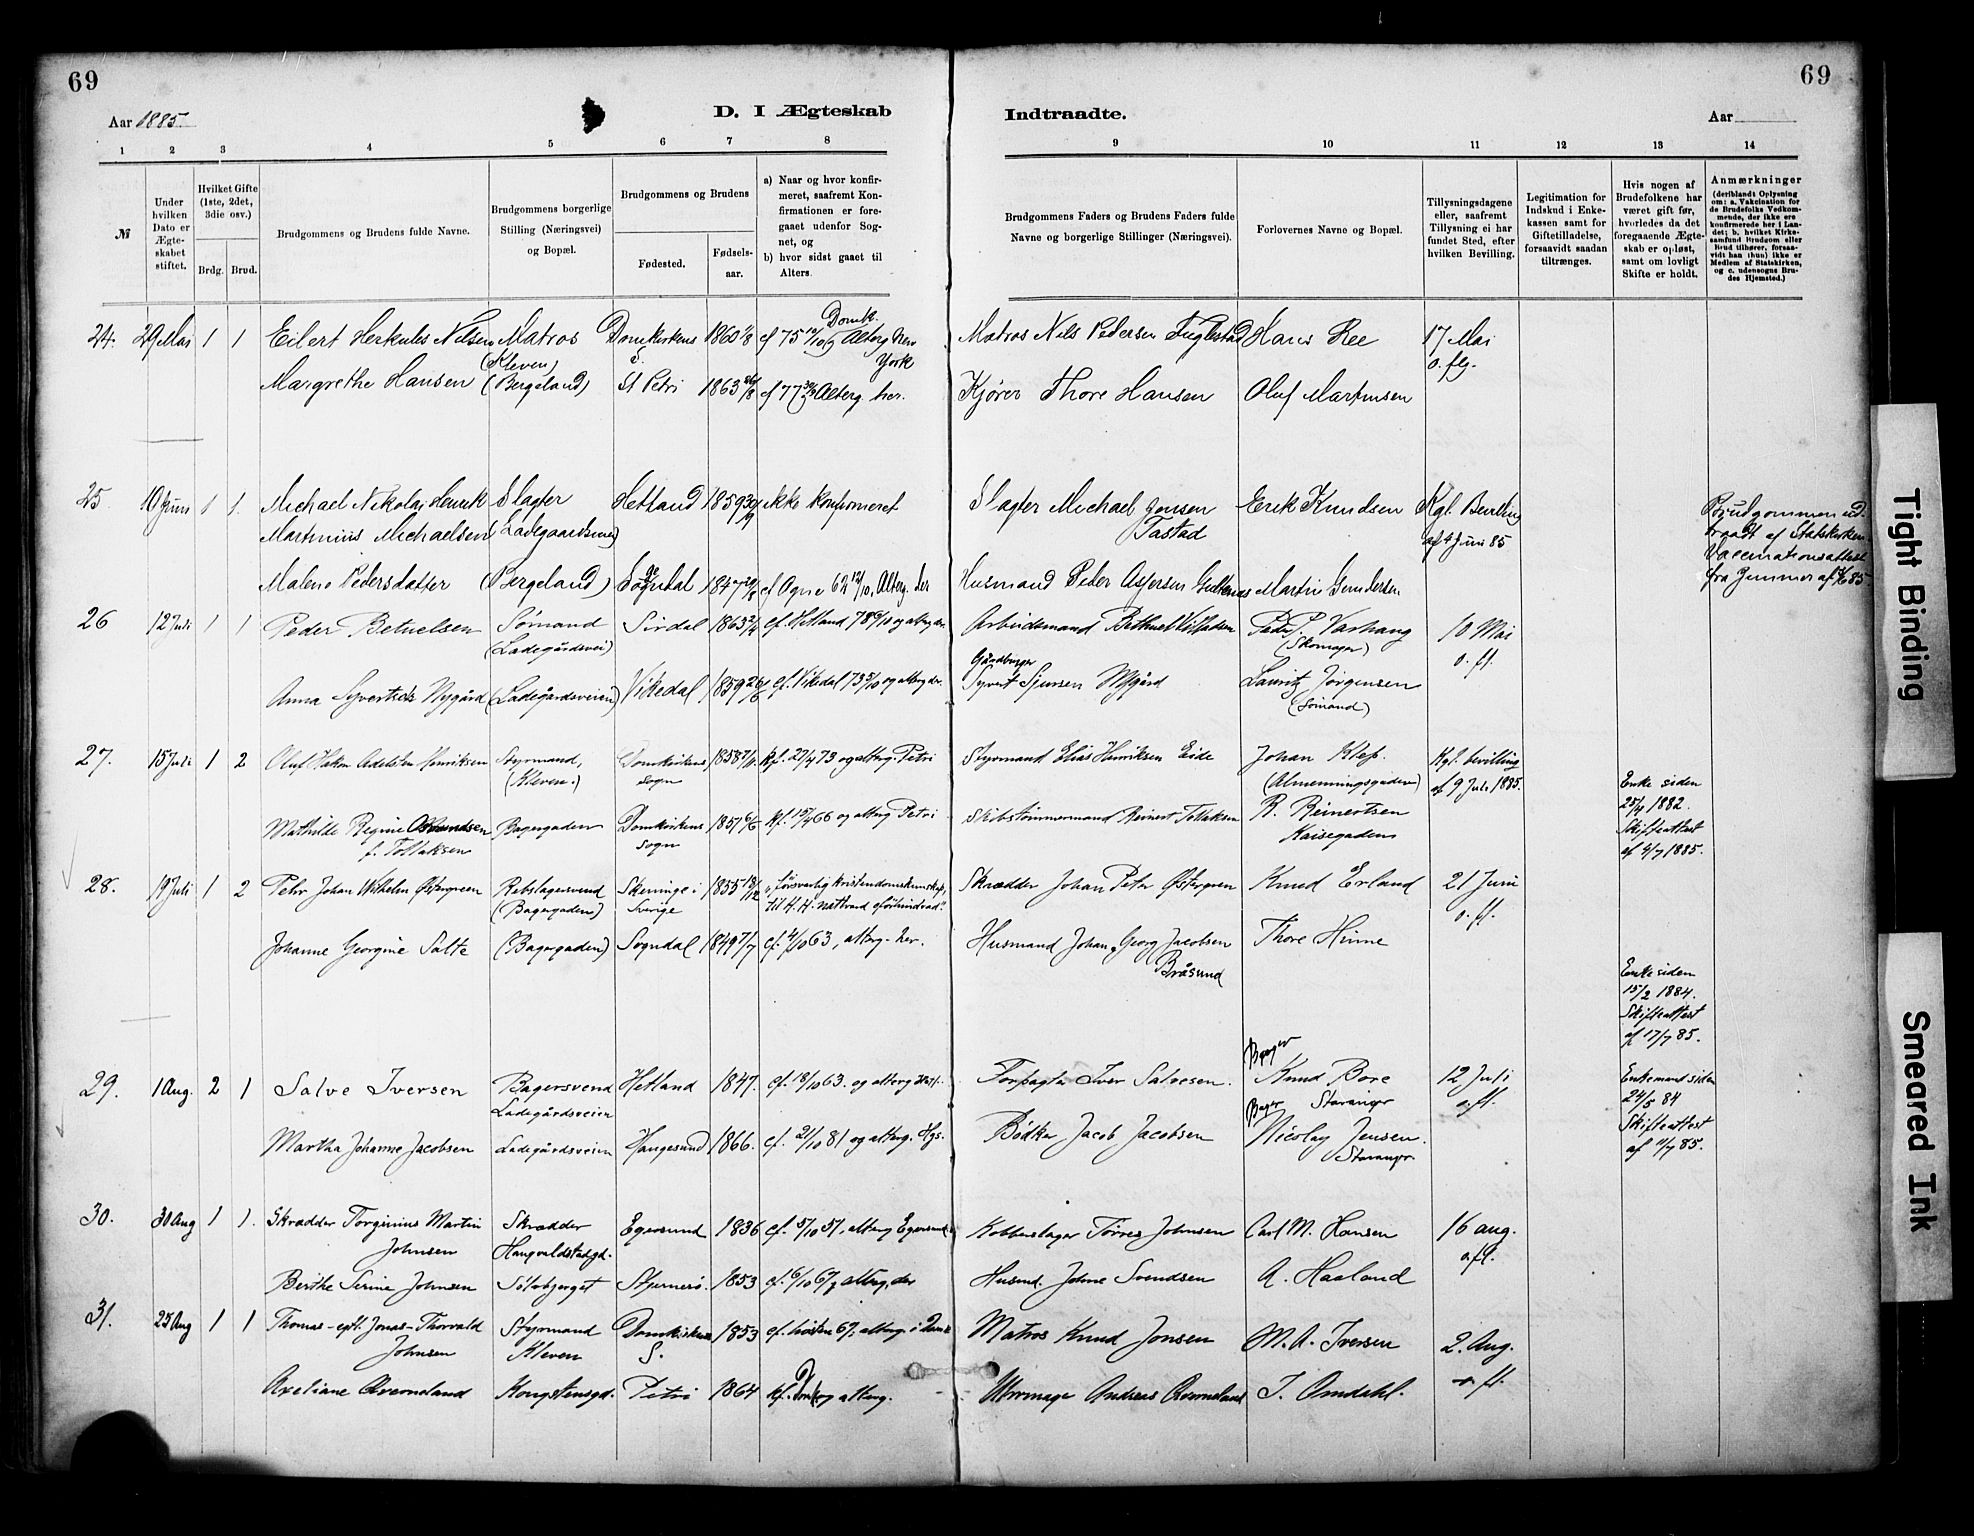 69
69
Aar 1885.
D. I Ægteskab
Indtraadte.
Aar
1 2 3 4 5 6 7 8 9 10 11 12 13 14
№
Under
hvilken
Dato er
Ægte-
skabet
stiftet.
Hvilket Gifte
(1ste, 2det,
3die osv.)
Brdg. Brud.
Brudgommens og Brudens fulde Navne.
Brudgommens borgerlige
Stilling (Næringsvei)
og Bopæl.
Brudgommens og Brudens
Fødested.
Fødsels-
aar.
a) Naar og hvor konfir-
meret, saafremt Kon-
firmationen er fore-
gaaet udenfor Sog-
net, og
b) hvor sidst gaaet til
Alters.
Brudgommens Faders og Brudens Faders fulde
Navne og borgerlige Stillinger (Næringsvei).
Forlovernes Navne og Bopæl.
Tillysningsdagene
eller, saafremt
Tillysning ei har
fundet Sted, efter
hvilken Bevilling.
Legitimation for
Indskud i Enke-
kassen samt for
Giftetilladelse,
forsaavidt saadan
tiltrænges.
Hvis nogen af
Brudefolkene har
været gift før,
hvorledes da det
foregaaende Ægte-
skab er opløst,
samt om lovligt
Skifte er holdt.
Anmærkninger
(deriblandt Oplysning
om: a. Vakcination for
de Brudefolks Vedkom-
mende, der ikke ere
konfirmerede her i Lan-
det; b. hvilket Kirke-
samfund Brudgom eller
Brud tilhører, forsaa-
vidt han (hun) ikke er
Medlem af Statskirken,
og c. udensogns Bru-
des Hjemsted.)
24. 29 Mai 1 1 Eilert Herkules Nilsen Matros Domkirkens 1860 1/8 cf 75 Domk. Alterg New Matros Nils Pedersen Fuglestad Hans Ree 17 Mai
(Kleven) S. York o. flg.
Margrethe Hansen (Bergeland) St Petri 1863 cf 77 Alterg. her. Kjører Thore Hansen Oluf Martinsen
25. 10 Juni 1 1. Michael Nikolai Henrik Slagter Hetland 1859 ikke konfirmeret Slagter Michael Jensen Erik Knudsen Kgl. Bevilling Brudgommen ud-
Martinius Michaelsen (Ladegaardsveien) Tastad af 4 Juni 85 traadt af Statskirken
Vaccinationsattest
Malene Pedersdatter (Bergeland) Sogndal 1847 cf Ogne 62 12/10, Alterg. der Husmand Peder Asfersen Martin Gundersen fra
26 12 Juli 1 1 Peder Betuelsen Sømand Sirdal 1863 cf. Hetland 78 og alterg der. Arbeidsmand Bethuel Peder P. Varhaug 10 Mai
(Ladegårdsvei) (Skomager) o. fl.
Gårdbruger
Anna Syvertsen Nygård (Ladegårdsveien) Vikedal 1859 cf. Vikedal 73 5/10 og alterg der. Syvert Sjursen Nygård Lauritz Jørgensen
(Sømand)
27. 15 Juli 1 2 Oluf Hakon Adelsten Henriksen Styrmand, Domkirkens 1858 kf. 27/4 73 og alterg. Petri Styrmand Elias Henriksen Eide Johan Klep. Kgl. bevilling
(Kleven.) sogn (Almenningsgaden) af 9 Juli 1885. Enke siden
25/4 1882.
Mathilde Regine Osmundsen Bagergaden Domkirkens 1851 6/6 kf. 15/4 66 og alterg Petri Skibstømmermand Reinert Tollaksen R. Reinertsen Skifteattest
f. Tollaksen sogn Kaisegaden af 4/7 1885.
28. 19 Juli 1 2 Petter Johan Wilhelm Østergreen Rebslagersvend Skeninge i 1855 „försvarlig kristendomskunskap, Skrædder Johan Peter Østergren Knud Erland 21 Juni
(Bagergaden) Sverige till H. H. nattvard oförhindrad." o. fl.
Johanne Georgine Salte (Bagergaden) Sogndal 1849 7/7 cf. 4/10 63, alterg. her. Husmand Johan Georg Jacobsen Thore Hinne
Bråsund
Enke siden
15/2 1884.
Skifteattest
af 17/7 85.
Bager
29. 1 Aug. 2 1 Salve Iversen Bagersvend Hetland 1847. cf. 18/10 63. og alterg Hetl. Forpagter Iver Salvesen. Knud Bore 12 Juli Enkemand siden
Ladegårdsveien Stavanger o. fl. 24/5 84
Bager Skifteattest
Martha Johanne Jacobsen Ladegårdsveien Haugesund 1866. cf. 21/10 81 og alterg. Hgs. Bødker Jacob Jacobsen Nicolay Jensen. af 11/7 85.
Stavanger
30. 30 Aug 1 1. Skrædder Torginius Martin Skrædder Egersund 1836 cf. 5/10 51, alterg Egersund Kobberslager Tørres Johnsen Carl M. Hansen 16 aug.
Johnsen Haugvaldstadgd. o. fl.
Berthe Serine Johnsen Sølvbjerget Stjernerö. 1853 cf. 6/10 67, alterg, der Husmd. Johne Svendsen A. Haaland
31. 25 Aug 1 1 Thomas - eptl. Jonas - Thorvald Styrmand Domkirkens 1853 cf. høsten 67, alterg. i Dom. Matros Knud Jonsen M. A. Iversen 2. Aug.
Johnsen Kleven S. o fl.
Axeliane Qverneland Kongstensgd. Petri 1864 kf. Domk. og alterg. Uhrmager Andreas Qverneland T. Omdahl.
Tight Binding
Smeared Ink